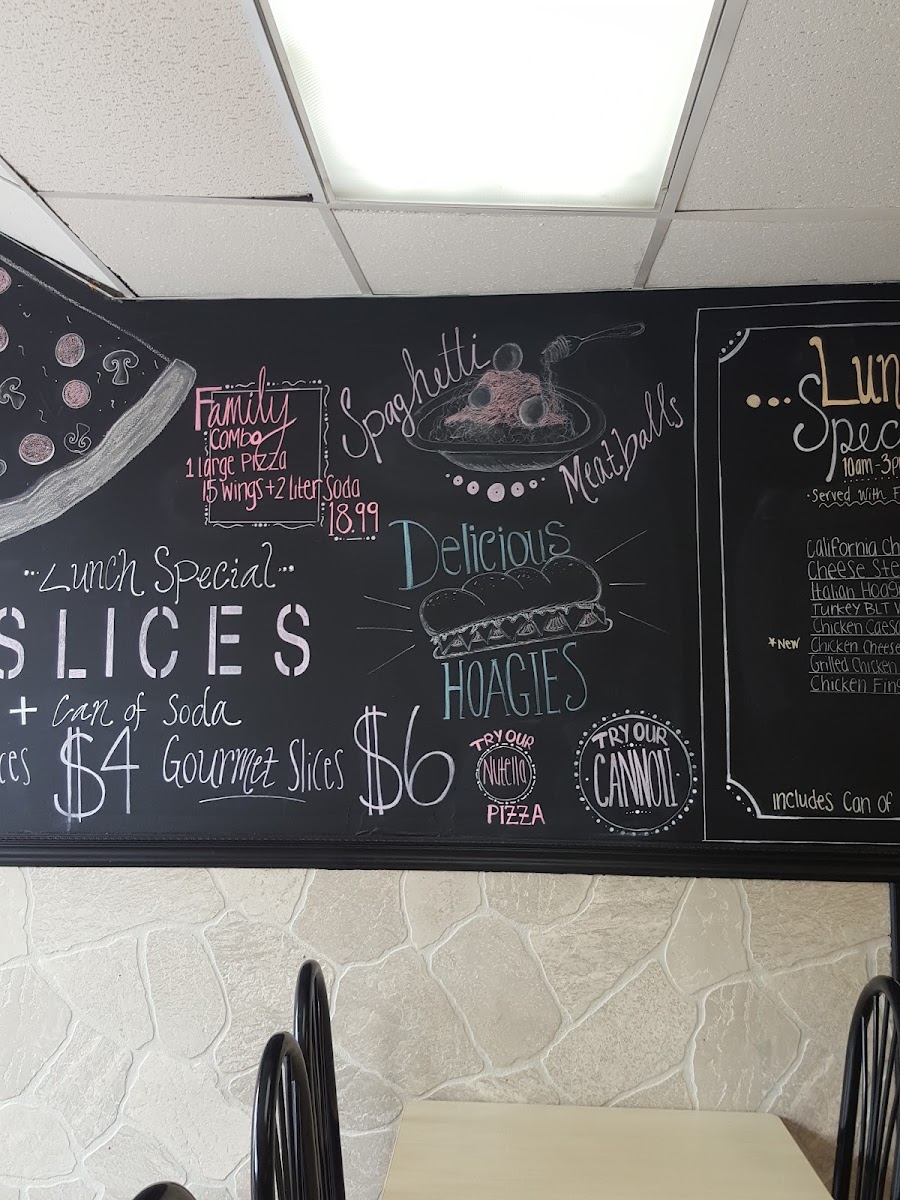 Family
Combo
1 large Pizza
15 wings + 2 liter Soda
18.99
Spaghetti
Meatballs
Delicious
HOAGIES
Lunch Special
SLICES
+ Can of Soda
ces $4 Gourmet Slices $6
TRY OUR
Nutella
PIZZA
TRY OUR
CANNOLI
Lun
Spec
10am-3p
Served with F
California Ch
Cheese Ste
Italian Hoag
Turkey BLT W
Chicken Caesa
*New Chicken Cheese
Grilled Chicken
Chicken Fing
includes Can of